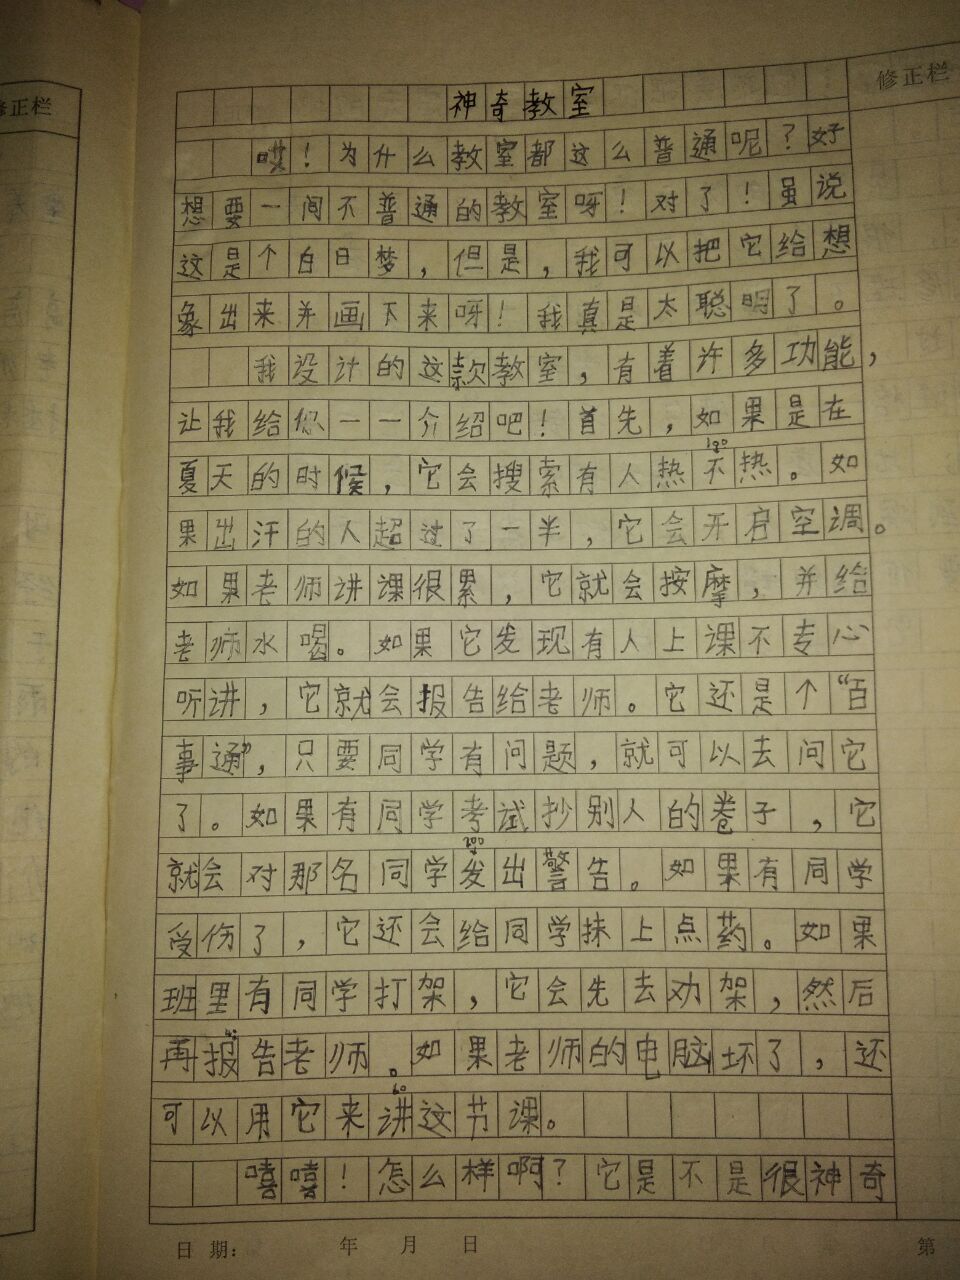 修正栏
修正栏
神奇教室
哎！为什么教室都这么普通呢？好
想要一间不普通的教室呀！对了！虽说
这是个白日梦，但是，我可以把它给想
象出来并画下来呀！我真是太聪明了。
我设计的这款教室，有着许多功能，
让我给你一一介绍吧！首先，如果是在
夏天的时候，它会搜索有人热不热。如
果出汗的人超过了一半，它会开启空调。
如果老师讲课很累，它就会按摩，并给
老师水喝。如果它发现有人上课不专心
听讲，它就会报告给老师。它还是个“百
事通”，只要同学有问题，就可以去问它
了。如果有同学考试抄别人的卷子，它
就会对那名同学发出警告。如果有同学
受伤了，它还会给同学抹上点药。如果
班里有同学打架，它会先去劝架，然后
再报告老师。如果老师的电脑坏了，还
可以用它来讲这节课。
嘻嘻！怎么样啊？它是不是很神奇
日 期： 年 月 日 第